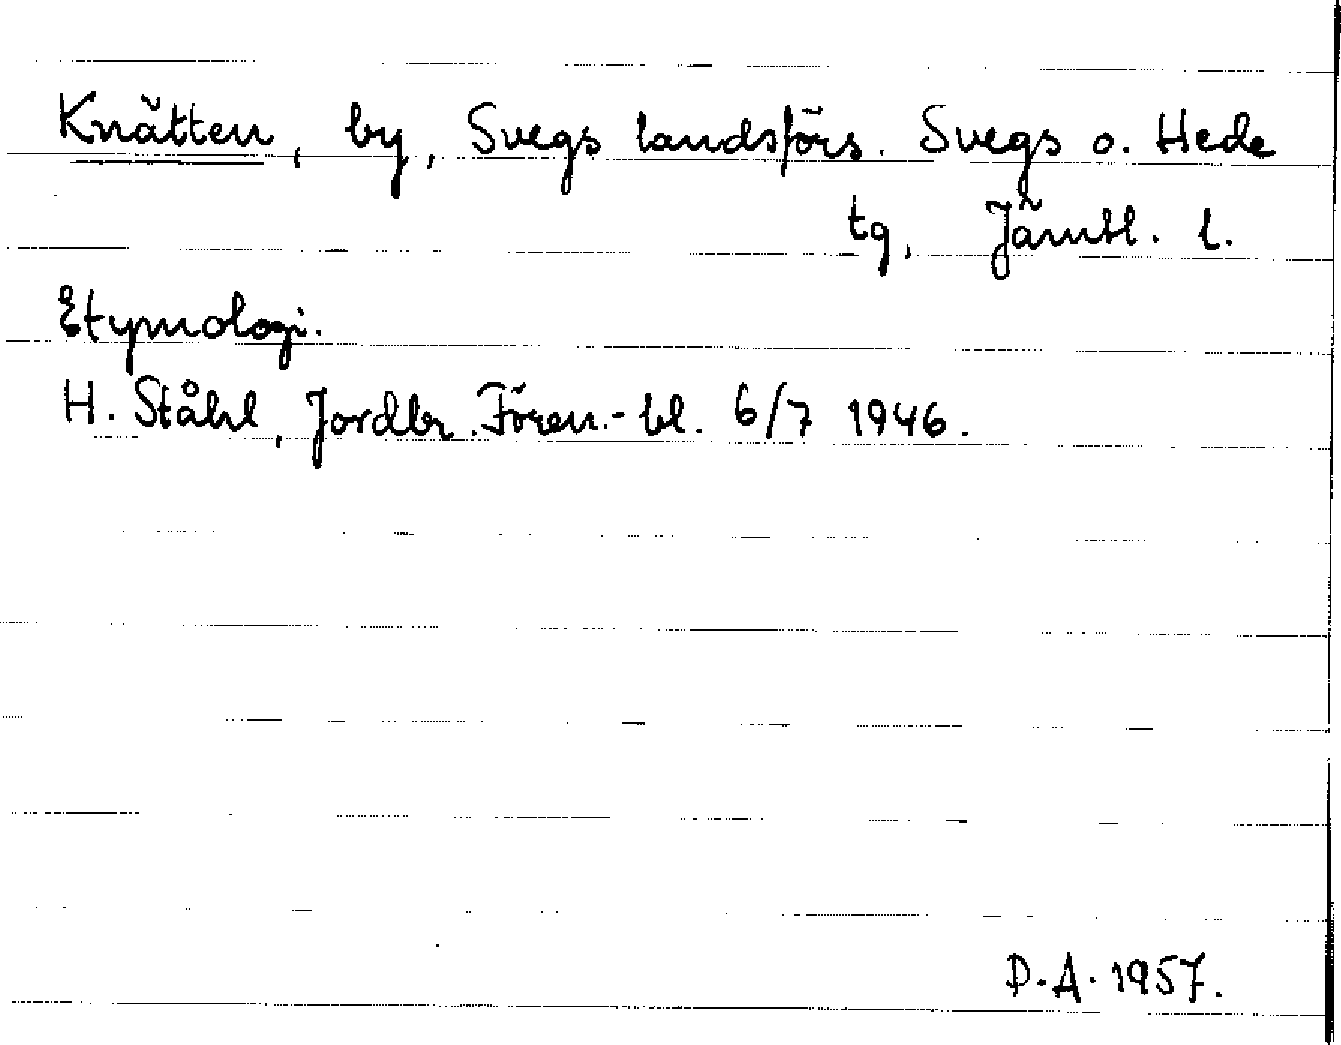 Knätten, by, Svegs landsförs. Svegs o. Hede
tg, Jämtl. l.
Etymologi.
H. Ståhl, Jordbr. Fören.-bl. 6/7 1946.
D.A. 1957.